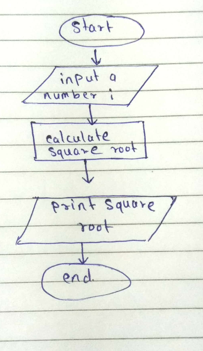 Start
input a
number i
calculate
square root
print square
root
end